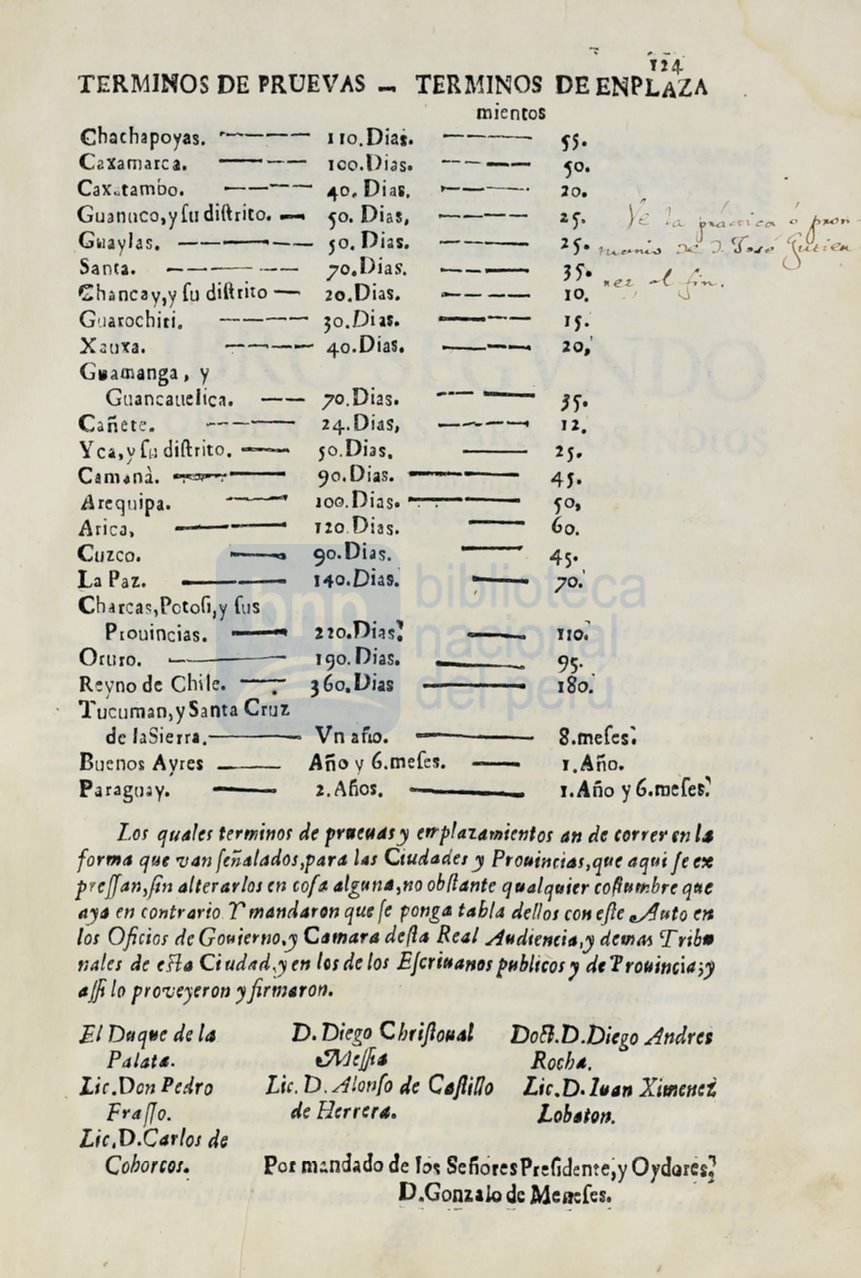 124
TERMINOS DE PRUEVAS — TERMINOS DE ENPLAZA
mientos
Chachapoyas. ———— 110.Dias. ———— 55.
Caxamarca. ———— 100.Dias. ———— 50.
Caxatambo. ———— 40. Dias. ———— 20.
Guanuco,y ſu diſtrito. — 50. Dias, ———— 25.
Guaylas. ———— 50. Dias. ———— 25.
Santa. ———— 70.Dias. ———— 35.
Chancay,y ſu diſtrito — 20.Dias. ———— 10.
Guarochiri. ———— 30.Dias. ———— 15.
Xauxa. ———— 40.Dias. ———— 20,
Guamanga, y
Guancauelica. —— 70.Dias. ———— 35.
Cañete. ———— 24.Dias, ———— 12.
Yca,y ſu diſtrito. —— 50.Dias. —— 25.
Camanà. ———— 90.Dias. ———— 45.
Arequipa. —— 100.Dias. ———— 50,
Arica, ———— 120.Dias. —— 60.
Cuzco. —— 90.Dias. —— 45.
La Paz. ———— 140.Dias. —— 70.
Charcas,Potoſi,y ſus
Prouincias. —— 220.Dias. —— 110.
Oruro. ———— 190. Dias. ———— 95.
Reyno de Chile. —— 360.Dias ———— 180.
Tucuman,y Santa Cruz
de la Sierra.———— Vn año. ———— 8.meſes.
Buenos Ayres —— Año y 6.meſes. —— 1.Año.
Paraguay. —— 2.Años. ———— 1.Año y 6.meſes.
Ve la práctica ó pron
tuario de D. José Gutierr
rez al fin.
Los quales terminos de prueuas y emplazamientos an de correr en la
forma que van ſeñalados,para las Ciudades y Prouincias,que aqui ſe ex
preſſan,ſin alterarlos en coſa alguna,no obſtante qualquier coſtumbre que
aya en contrario Y mandaron que ſe ponga tabla dellos con eſte Auto en
los Oficios de Gouierno,y Camara deſta Real Audiencia,y demas Tribu
nales de eſta Ciudad,y en los de los Eſcriuanos publicos y de Prouincia;y
aſſi lo proveyeron y firmaron.
El Duque de la Palata.
D. Diego Chriſtoual Meſſia
Doct.D.Diego Andres Rocha.
Lic.Don Pedro Fraſſo.
Lic. D. Alonſo de Caſtillo de Herrera.
Lic.D.Iuan Ximenez Lobaton.
Lic,D.Carlos de Cohorcos.
Por mandado de los Señores Preſidente,y Oydores.
D.Gonzalo de Meneſes.
bnp
biblioteca
nacional
del perú